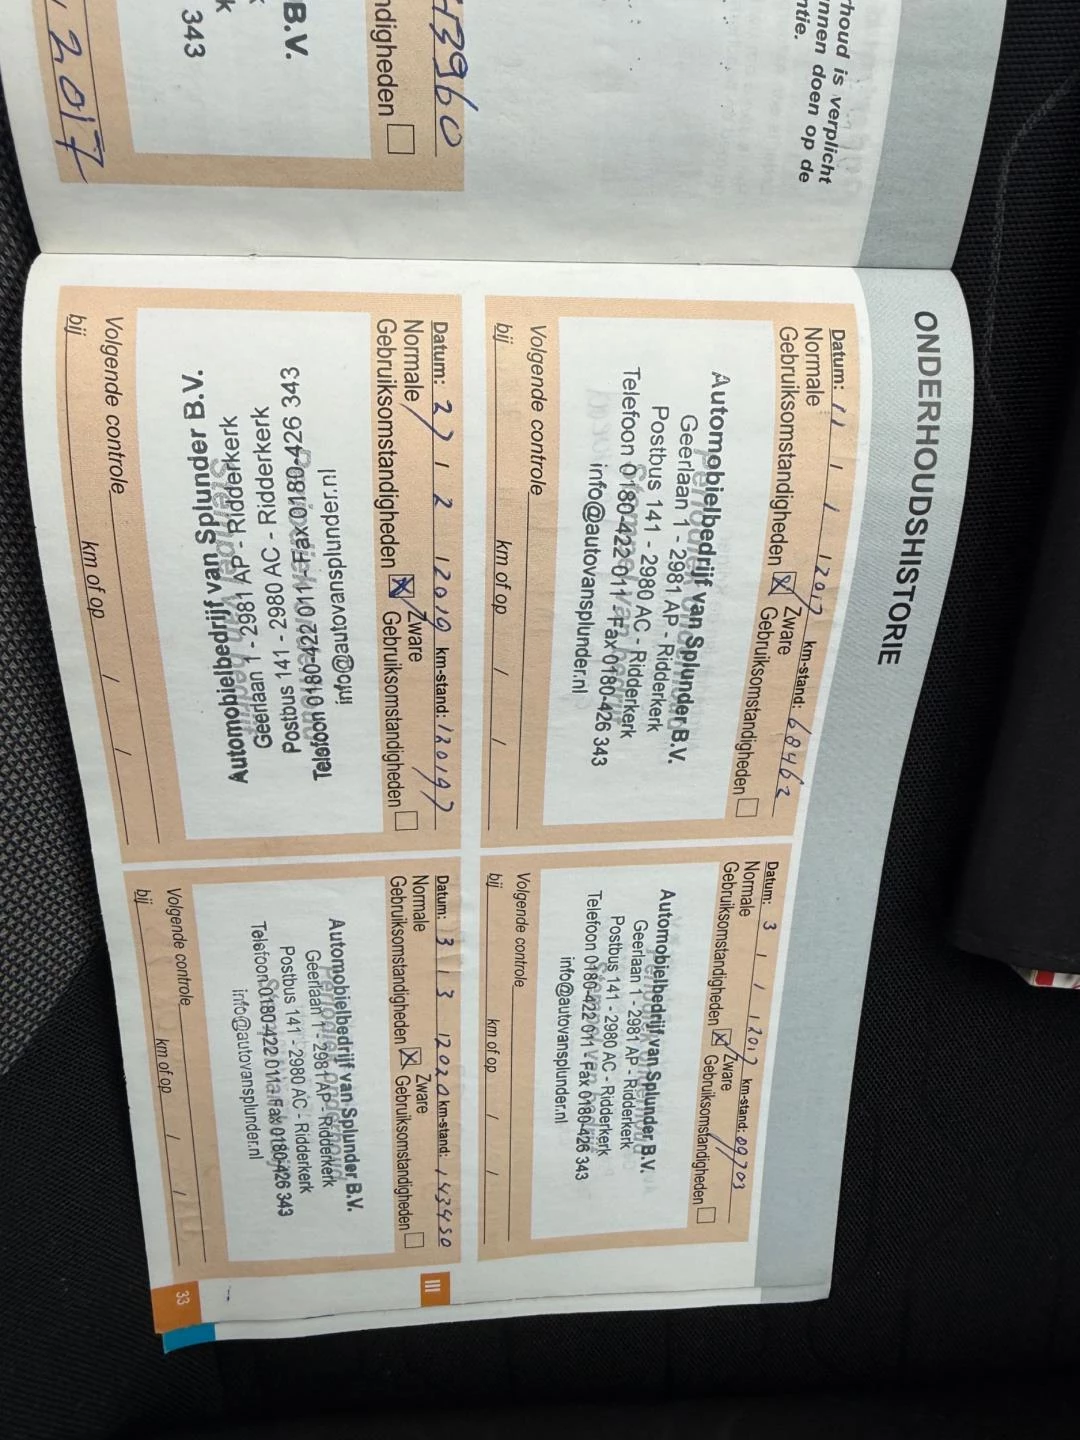 rhoud is verplicht
nnen doen op de
ntie.
13960
ndigheden
B.V.
k
343
2017
ONDERHOUDSHISTORIE
Datum: 11 / 1 / 2017 km-stand: 68462
Normale Gebruiksomstandigheden Zware Gebruiksomstandigheden
Automobielbedrijf van Splunder B.V.
Geerlaan 1 - 2981 AP - Ridderkerk
Postbus 141 - 2980 AC - Ridderkerk
Telefoon 0180-422 011 - Fax 0180-426 343
info@autovansplunder.nl
Volgende controle
bij km of op / /
Datum: 3 / 1 / 2017 km-stand:
Normale Gebruiksomstandigheden Zware Gebruiksomstandigheden
Automobielbedrijf van Splunder B.V.
Geerlaan 1 - 2981 AP - Ridderkerk
Postbus 141 - 2980 AC - Ridderkerk
Telefoon 0180-422 011 - Fax 0180-426 343
info@autovansplunder.nl
Volgende controle
bij km of op / /
Datum: 27 / 2 / 2019 km-stand: 120197
Normale Gebruiksomstandigheden Zware Gebruiksomstandigheden
Automobielbedrijf van Splunder B.V.
Geerlaan 1 - 2981 AP - Ridderkerk
Postbus 141 - 2980 AC - Ridderkerk
Telefoon 0180-422 011 - Fax 0180-426 343
info@autovansplunder.nl
Volgende controle
bij km of op / /
Datum: 3 / 3 / 2020 km-stand: 143450
Normale Gebruiksomstandigheden Zware Gebruiksomstandigheden
Automobielbedrijf van Splunder B.V.
Geerlaan 1 - 2981 AP - Ridderkerk
Postbus 141 - 2980 AC - Ridderkerk
Telefoon 0180-422 011 - Fax 0180-426 343
info@autovansplunder.nl
Volgende controle
bij km of op / /
III
33